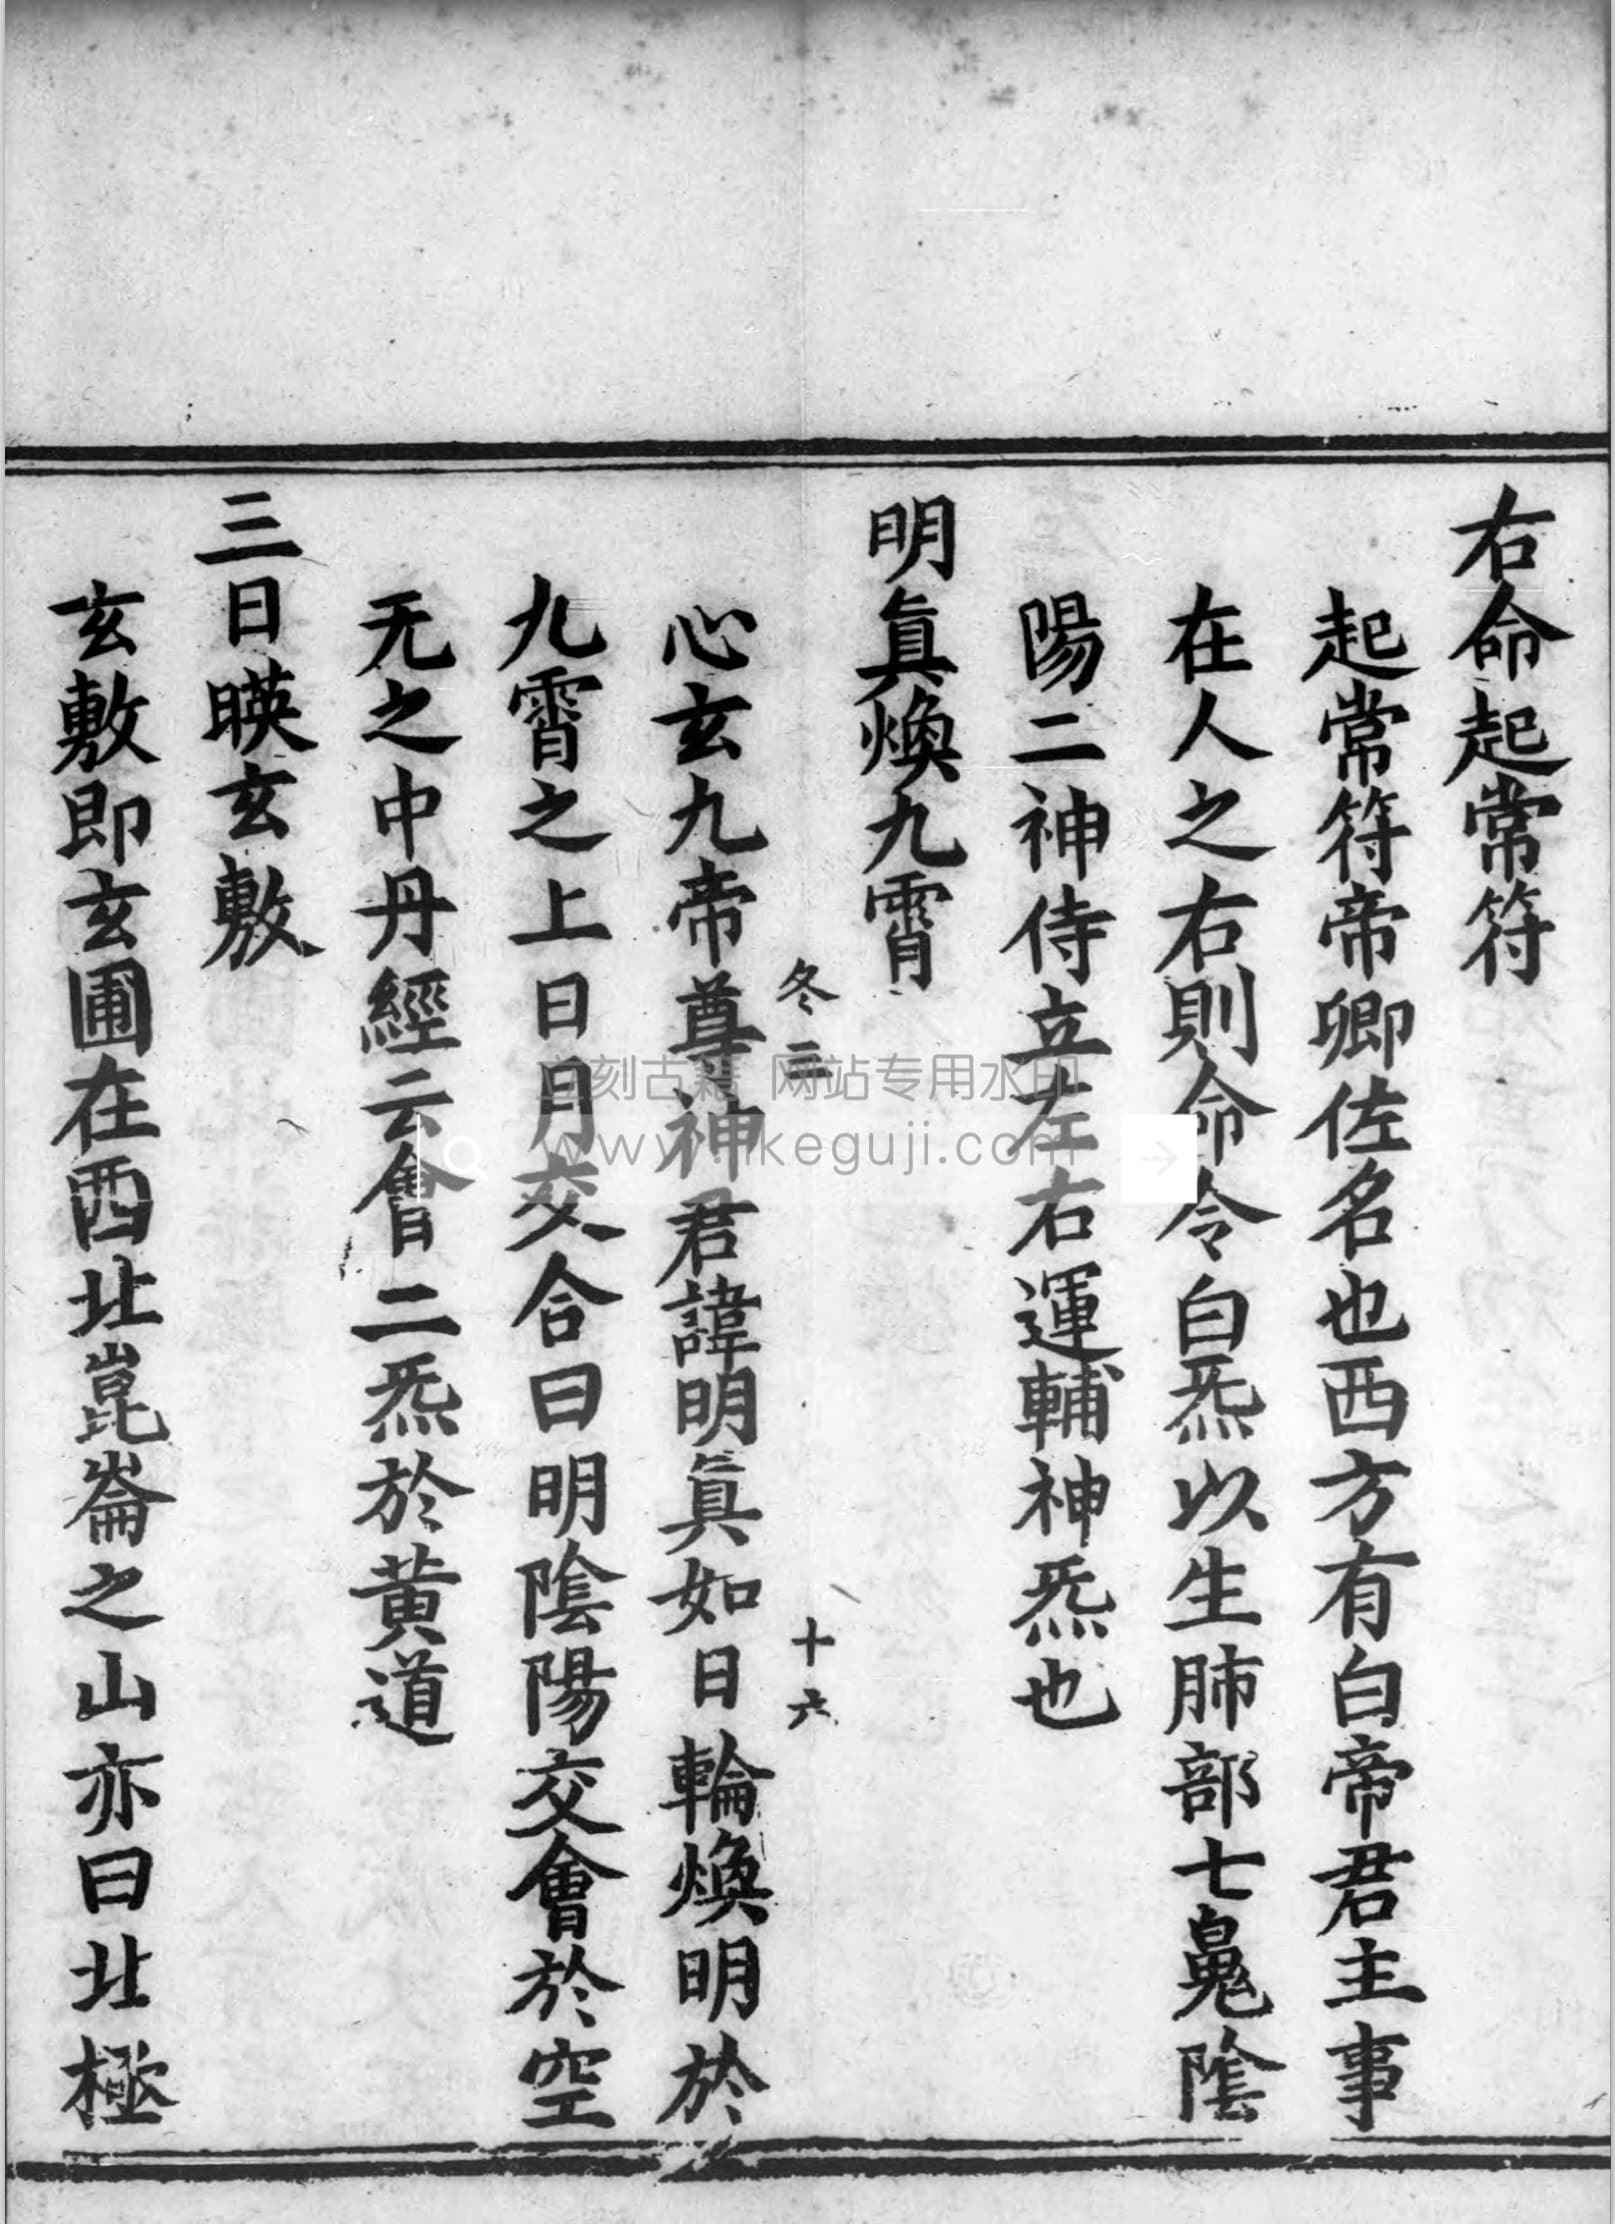 右命起常符
起常符帝卿佐名也西方有白帝君主事
在人之右則命令白炁以生肺部七鬼陰
陽二神侍立左右運輔神炁也
明眞煥九霄
冬二 十六
心玄九帝尊神君諱明眞如日輪煥明於
九霄之上日月交合曰明陰陽交會於空
无之中丹經云會二炁於黄道
三日暎玄敷
玄敷即玄圃在西北崑崙之山亦曰北極
刻古籍 网站专用水印
www. keguji.com